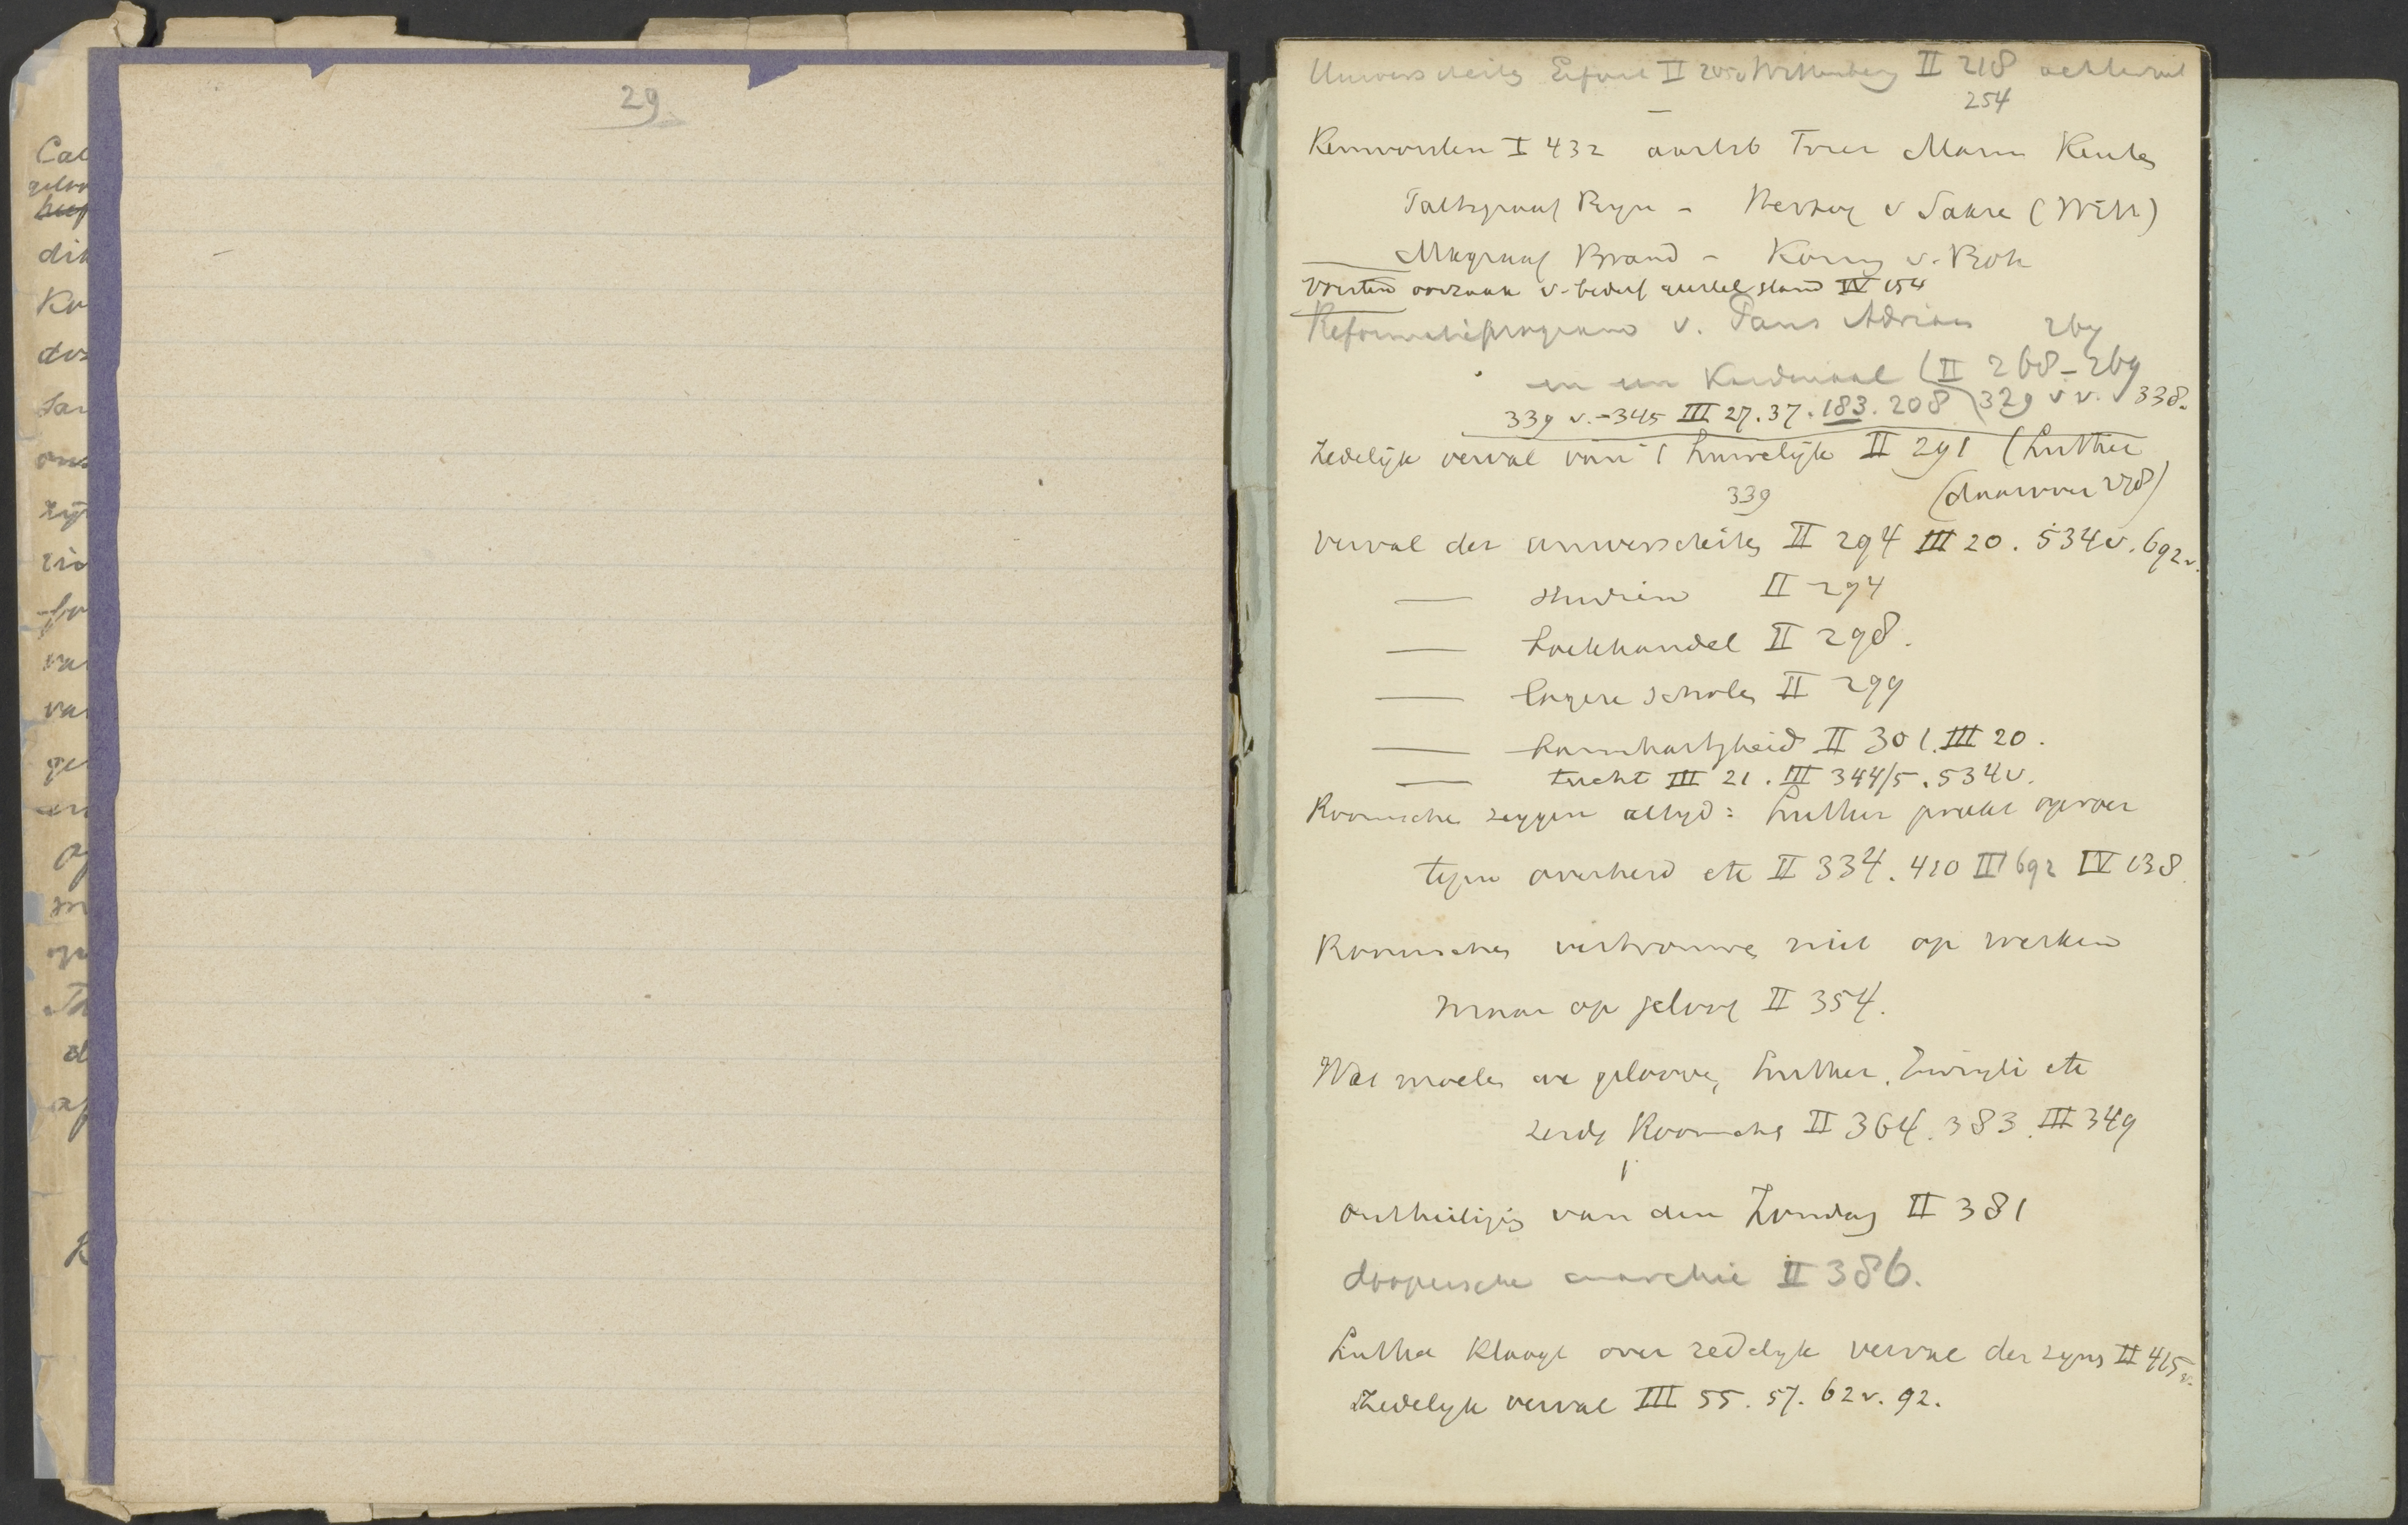 29
Universiteiten Erfurt II 205v Wittenberg II 218 achteruit
254
Keurvorsten I 432 aartsb Trier Mainz Keulen
Paltsgraaf Rijn - Hertog v Sakse (Witt)
Mkgraaf Brand - Koning v. Boh
Vorsten oorzaak v. bederf geestel stand IV 154
Reformatieprogram v. Paus Adriaan 267
en een Kardinaal (II 268-269
339 v.-345 III 27.37.183.208 329 vv. 338.
Zedelijk verval van 't huwelijk II 291 (Luther
339 (daarover 278)
Verval der universiteiten II 294 III 20. 534v. 692v.
— studien II 294
— boekhandel II 298.
— lagere scholen II 299
— barmhartigheid II 301. III 20.
— tucht III 21. III 344/5. 534v.
Roomschen zeggen altijd: Luther preekt oproer
tegen overheid etc II 334. 410 III 692 IV 138
Roomschen vertrouwen niet op werken
maar op geloof II 354.
Wat moeten we gelooven, Luther, Zwingli etc
zeide Roomschen II 364. 383. III 349
Ontheiliging van den Zondag II 381
doopersche anarchie II 386.
Luther klaagt over zedelijk verval der zijnen II 415v.
Zedelijk verval III 55. 57. 62v. 92.